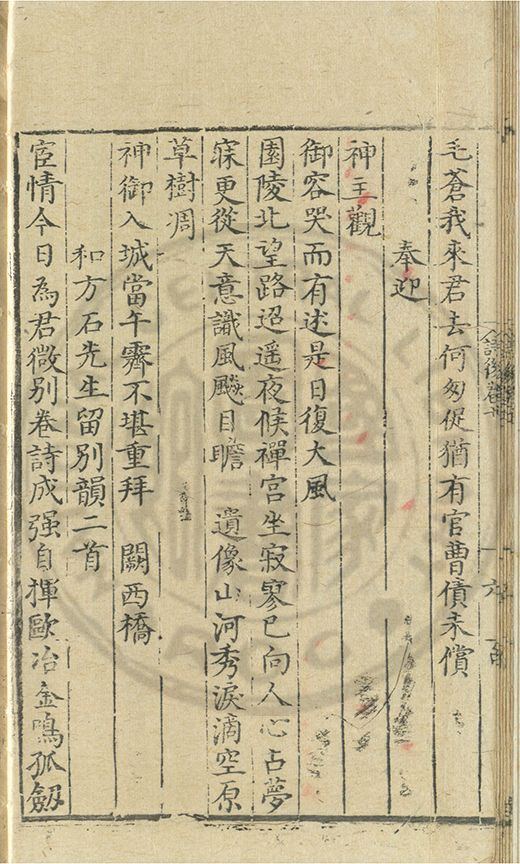 毛蒼我來君去何匆促猶有官曹債未償
奉迎
神主觀
御容哭而有述是日復大風
園陵北望路迢遥夜候禪宮坐寂寥已向人心占夢
寐更從天意識風飇目瞻　遺像山河秀淚滴空原
草樹凋
神御入城當午霽不堪重拜　闕西橋
和方石先生留别韻二首
宦情今日為君微别卷詩成强自揮歐冶金鳴孤劔